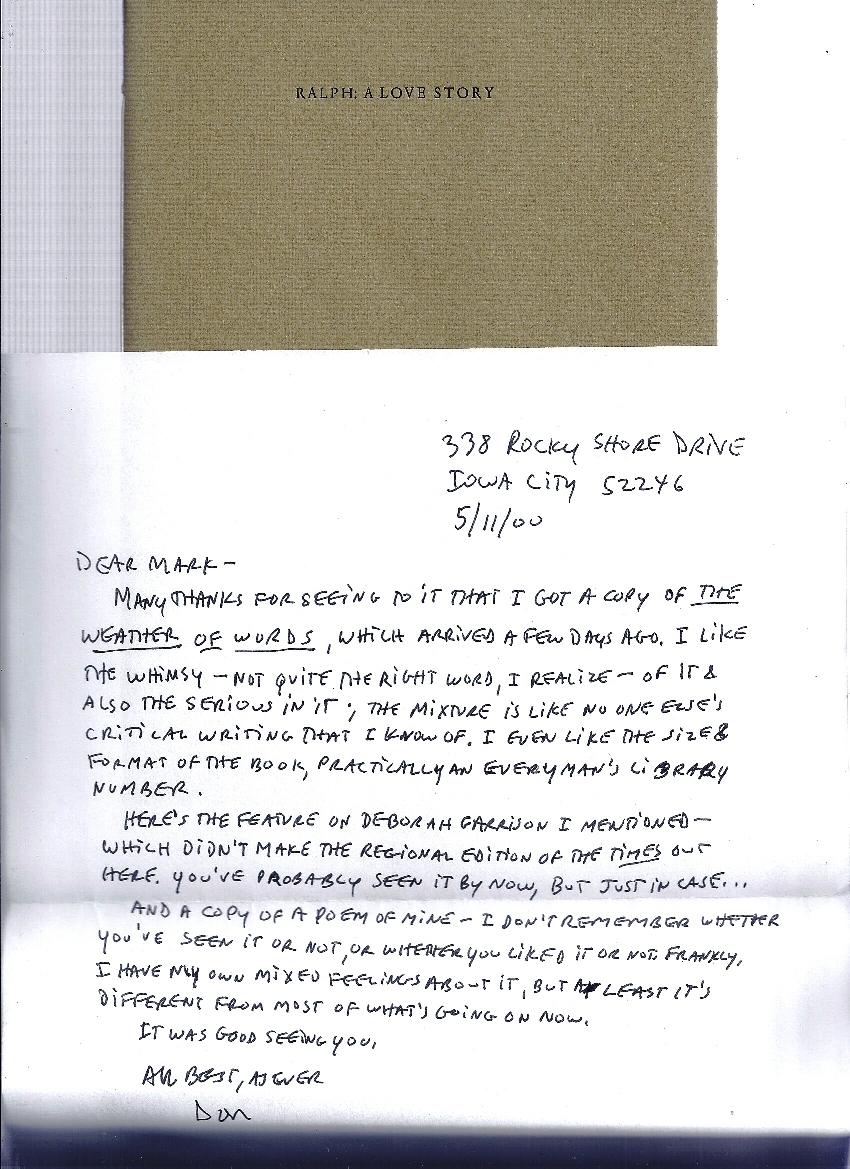 RALPH: A LOVE STORY
338 ROCKY SHORE DRIVE
IOWA CITY 52246
5/11/00
DEAR MARK —
MANY THANKS FOR SEEING TO IT THAT I GOT A COPY OF THE
WEATHER OF WORDS, WHICH ARRIVED A FEW DAYS AGO. I LIKE
THE WHIMSY — NOT QUITE THE RIGHT WORD, I REALIZE — OF IT &
ALSO THE SERIOUS IN IT; THE MIXTURE IS LIKE NO ONE ELSE'S
CRITICAL WRITING THAT I KNOW OF. I EVEN LIKE THE SIZE &
FORMAT OF THE BOOK, PRACTICALLY AN EVERYMAN'S LIBRARY
NUMBER.
HERE'S THE FEATURE ON DEBORAH GARRISON I MENTIONED —
WHICH DIDN'T MAKE THE REGIONAL EDITION OF THE TIMES OUT
HERE. YOU'VE PROBABLY SEEN IT BY NOW, BUT JUST IN CASE...
AND A COPY OF A POEM OF MINE — I DON'T REMEMBER WHETHER
YOU'VE SEEN IT OR NOT, OR WHETHER YOU LIKED IT OR NOT. FRANKLY,
I HAVE MY OWN MIXED FEELINGS ABOUT IT, BUT AT LEAST IT'S
DIFFERENT FROM MOST OF WHAT'S GOING ON NOW.
IT WAS GOOD SEEING YOU.
ALL BEST, AS EVER
Don